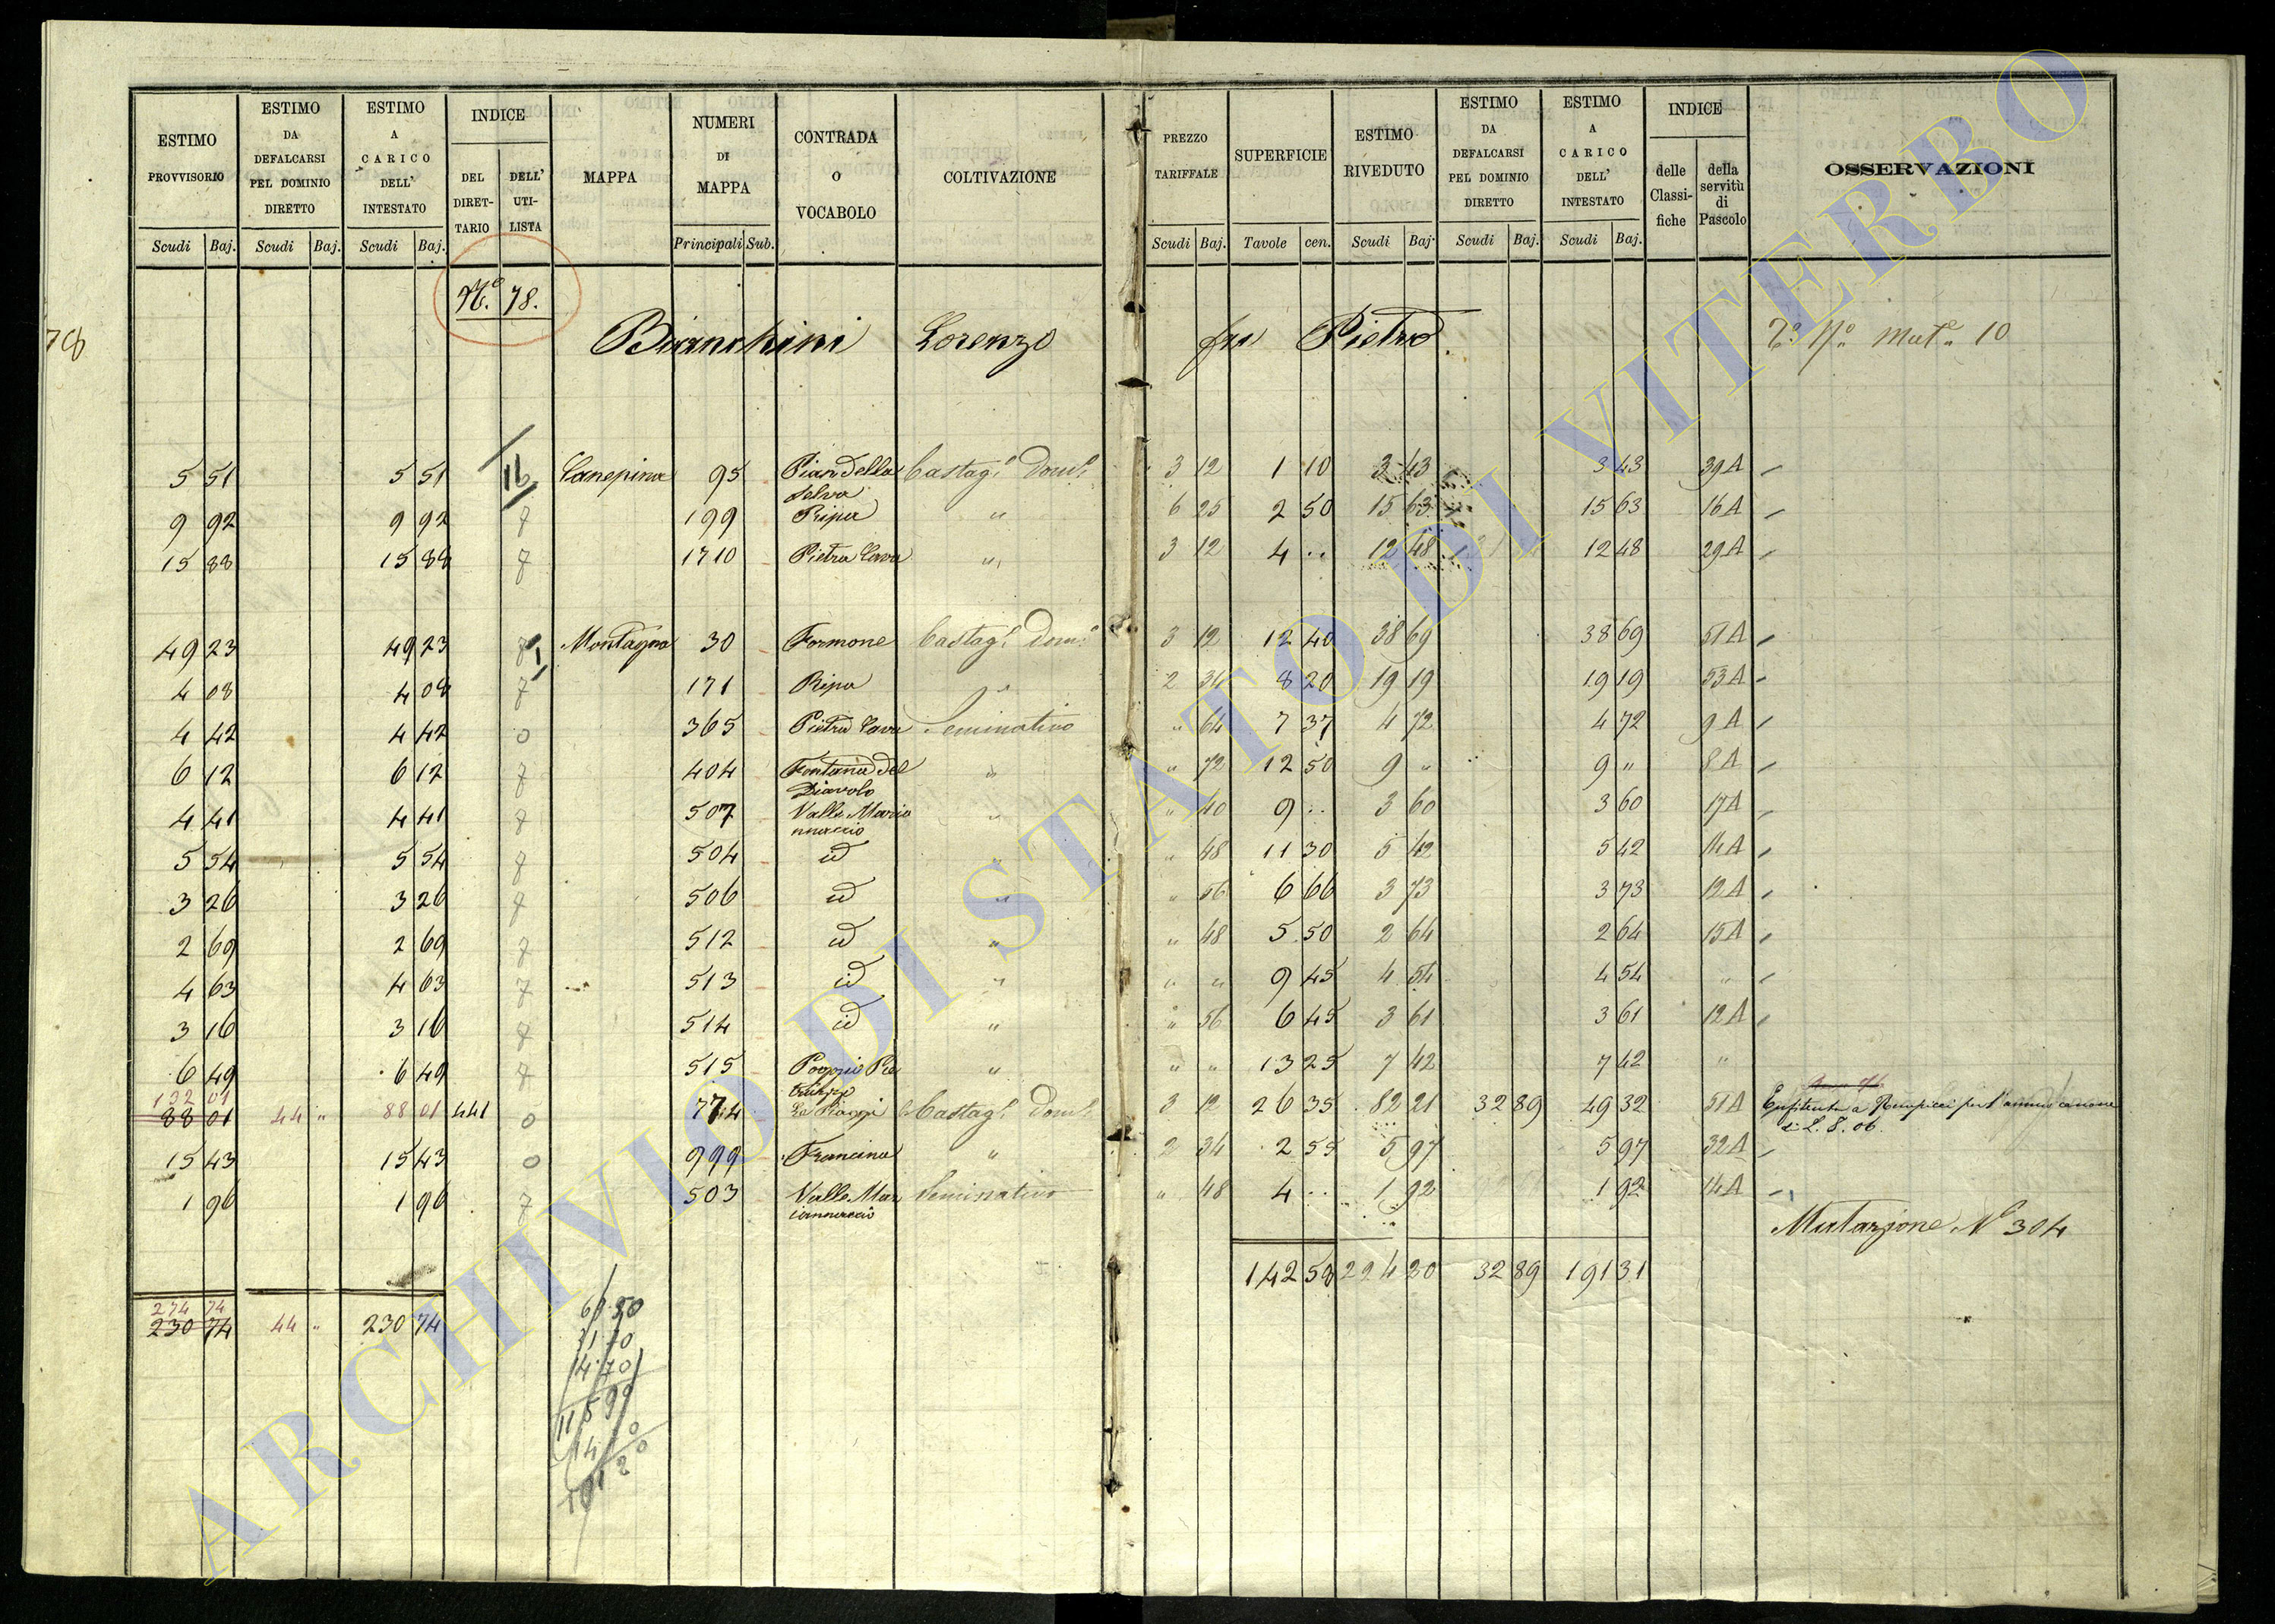 ESTIMO PROVVISORIO Scudi Baj.
ESTIMO DA DEFALCARSI PEL DOMINIO DIRETTO Scudi Baj.
ESTIMO A CARICO DELL' INTESTATO Scudi Baj.
INDICE DEL DIRET- TARIO DELL' UTI- LISTA
MAPPA
NUMERI DI MAPPA Principali Sub.
CONTRADA O VOCABOLO
COLTIVAZIONE
PREZZO TARIFFALE Scudi Baj.
SUPERFICIE Tavole cen.
ESTIMO RIVEDUTO Scudi Baj.
ESTIMO DA DEFALCARSI PEL DOMINIO DIRETTO Scudi Baj.
ESTIMO A CARICO DELL' INTESTATO Scudi Baj.
INDICE delle Classi- fiche della servitù di Pascolo
OSSERVAZIONI
78
N.° 78.
Bianchini Lorenzo fu Pietro
Mut.e 10
5 51 5 51 Canepina 95 Pian della Selva Castag.o Dom.o 3 12 1 10 3 43 3 43 39A
9 92 9 92 199 Ripa " 6 25 2 50 15 63 15 63 16A
15 88 15 88 1710 Pietra Cava " 3 12 4 .. 12 48 12 48 29A
49 23 49 23 Montagna 30 Formone Castag.o Dom.o 3 12 12 40 38 69 38 69 51A
4 08 4 08 171 Ripa " 2 34 8 20 19 19 19 19 53A
4 42 4 42 0 365 Pietra Cava Seminativo " 64 7 37 4 72 4 72 9A
6 12 6 12 404 Fontana del Diavolo " " 72 12 50 9 " 9 " 8A
4 41 4 41 507 Valle Mario nnaccio " " 40 9 .. 3 60 3 60 17A
5 54 5 54 504 id " " 48 11 30 5 42 5 42 14A
3 26 3 26 506 id " " 56 6 66 3 73 3 73 12A
2 69 2 69 512 id " " 48 5 50 2 64 2 64 15A
4 63 4 63 513 id " " " 9 45 4 54 4 54 "
3 16 3 16 514 id " " 56 6 45 3 61 3 61 12A
6 49 6 49 515 Poggio " " " 13 25 7 42 7 42 "
132 01
88 01 44 " 88 01 441 0 774 La Piaggi Castag.o Dom.o 3 12 26 35 82 21 32 89 49 32 51A Enfiteuta a Rempicci per l'annuo canone
di L. 8.06.
15 43 15 43 0 999 Francina " 2 34 2 55 5 97 5 97 32A
1 96 1 96 503 Valle Mar iannaccio Seminativo " 48 4 .. 1 92 1 92 14A
Mutazione N° 304
142 58 224 20 32 89 191 31
274 74
230 74 44 " 230 74
ARCHIVIO DI STATO DI VITERBO